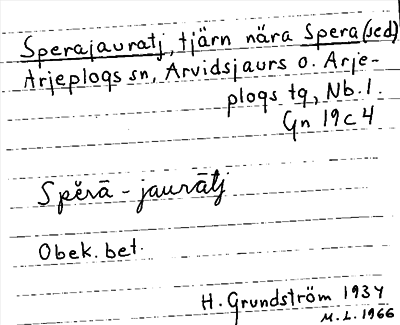 Sperajauratj, tjärn nära Spera (sed)
Arjeplogs sn, Arvidsjaurs o. Arje-
plogs tg, Nb. l.
Gn 19c4
Spĕrā - jaurātj
Obek. bet.
H. Grundström 1934
M.L. 1966